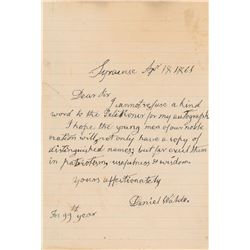 Syracuse Apr 18 1861
Dear Sir
I cannot refuse a kind
word to the Petitioner for my autograph
I hope the young men of our noble
nation will not only have a copy of
distinguished names; but far excel them
in patriotism, usefulness & wisdom.
Yours affectionately
Daniel Waldo.
In 99th year